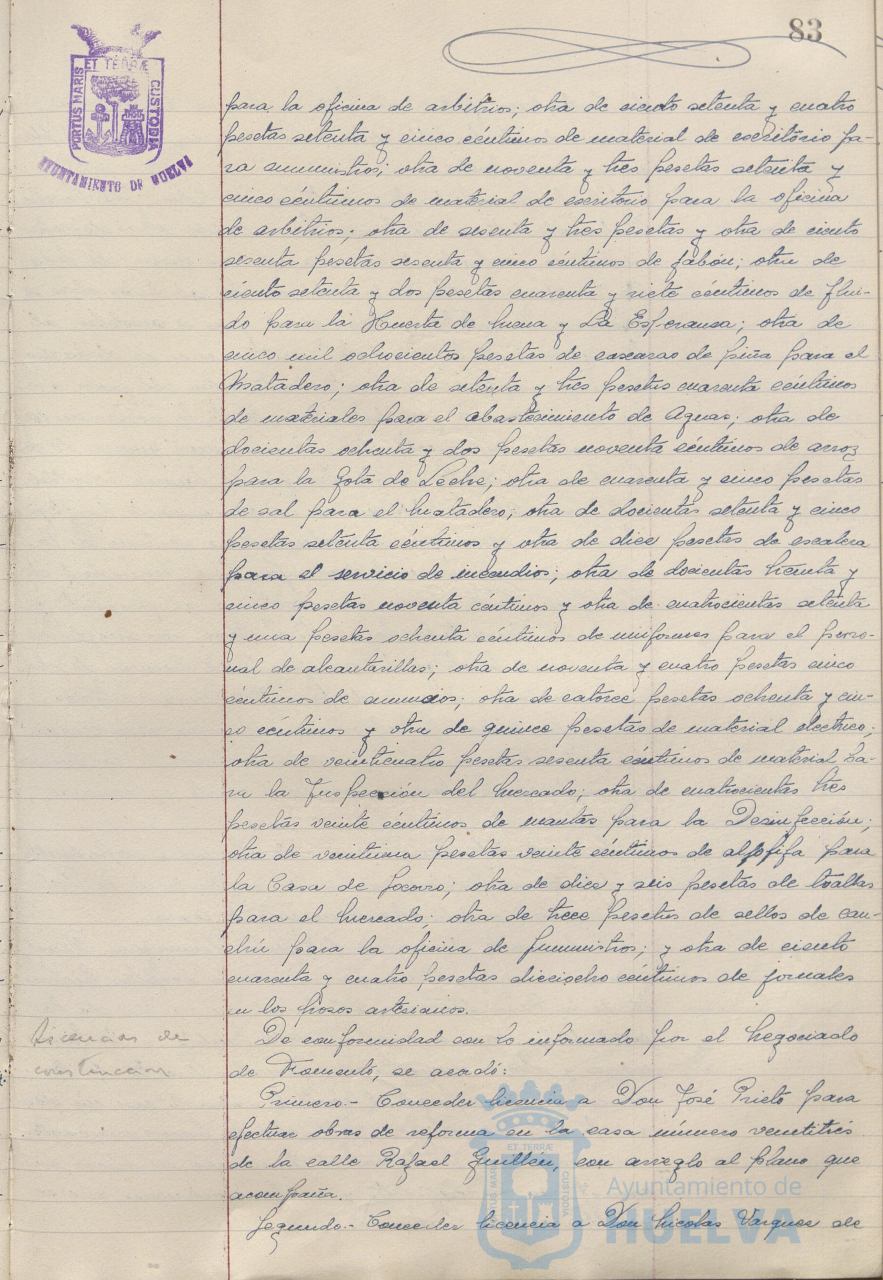 83
ET TERRÆ
PORTUS MARIS
CUSTODIA
AYUNTAMIENTO DE HUELVA
para la oficina de arbitrios; otra de ciento setenta y cuatro
pesetas setenta y cinco céntimos de material de escritorio pa-
ra suministros; otra de noventa y tres pesetas setenta y
cinco céntimos de material de escritorio para la oficina
de arbitrios; otra de sesenta y tres pesetas y otra de ciento
sesenta pesetas sesenta y cinco céntimos de jabón; otra de
ciento setenta y dos pesetas cuarenta y siete céntimos de flui-
do para la Huerta de Mena y La Esperanza; otra de
cinco mil ochocientos pesetas de cascaras de piña para el
Matadero; otra de setenta y tres pesetas cuarenta céntimos
de materiales para el abastecimiento de Aguas; otra de
docientas ochenta y dos pesetas noventa céntimos de arroz
para la Gota de Leche; otra de cuarenta y cinco pesetas
de sal para el Matadero; otra de docientas setenta y cinco
pesetas setenta céntimos y otra de diez pesetas de escalera
para el servicio de incendios; otra de docientas treinta y
cinco pesetas noventa céntimos y otra de cuatrocientas setenta
y una pesetas ochenta céntimos de uniformes para el perso-
nal de alcantarillas; otra de noventa y cuatro pesetas cinco
céntimos de anuncios; otra de catorce pesetas ochenta y cin-
co céntimos y otra de quince pesetas de material electrico;
otra de veinticuatro pesetas sesenta céntimos de material pa-
ra la Inspección del Mercado; otra de cuatrocientas tres
pesetas veinte céntimos de mantas para la Desinfección;
otra de veintiuna pesetas veinte céntimos de aljofifa para
la Casa de Socorro; otra de diez y seis pesetas de toallas
para el Mercado; otra de trece pesetas de sellos de cau-
chú para la oficina de Suministros; y otra de ciento
cuarenta y cuatro pesetas dieciocho céntimos de jornales
en los pozos artesianos.
Licencias de
construccion
De conformidad con lo informado por el Negociado
de Fomento, se acordó:
Primero.- Conceder licencia a Don José Prieto para
efectuar obras de reforma en la casa número ventitrés
de la calle Rafael Guillén, con arreglo al plano que
acompaña.
Segundo.- Conceder licencia a Don Nicolas Vazquez de
ET TERRÆ
CUSTODIA
Ayuntamiento de
HUELVA